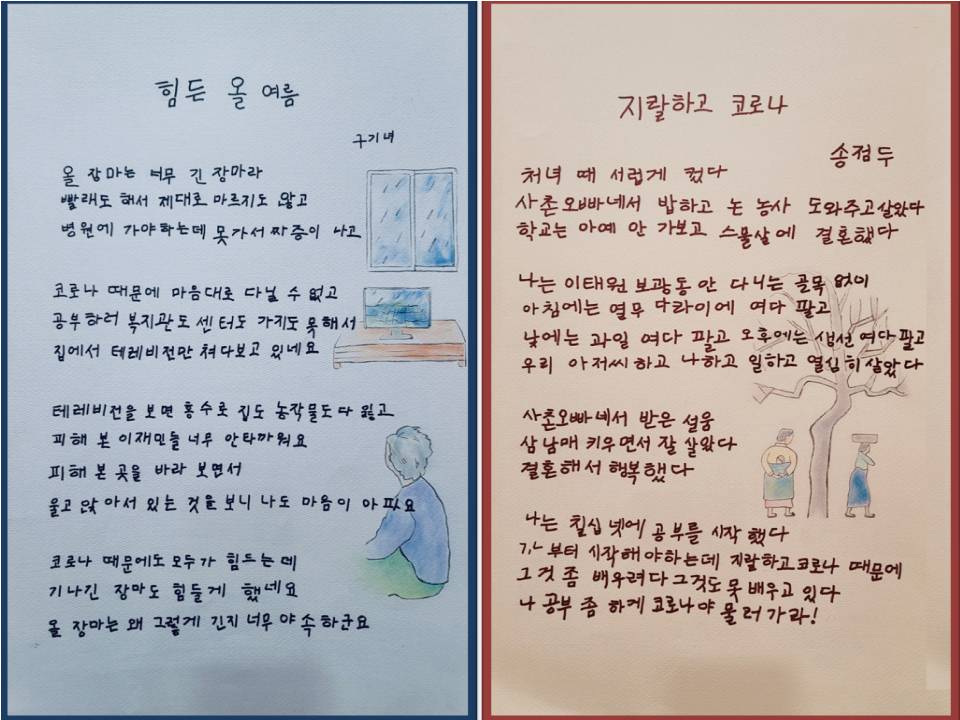 힘든 올 여름
구기녀
올 장마는 너무 긴 장마라
빨래도 해서 제대로 마르지도 않고
병원에 가야하는데 못가서 짜증이 나고
코로나 때문에 마음대로 다닐 수 없고
공부하러 복지관도 센터도 가지도 못해서
집에서 테레비전만 쳐다보고 있네요
테레비전을 보면 홍수로 집도 농작물도 다 잃고
피해 본 이재민들 너무 안타까워요
피해 본 곳을 바라 보면서
울고 앉아서 있는 것을 보니 나도 마음이 아파요
코로나 때문에도 모두가 힘드는데
기나진 장마도 힘들게 했네요
올 장마는 왜 그렇게 긴지 너무 야속하군요
지랄하고 코로나
송점두
처녀 때 서럽게 컸다
사촌오빠네서 밥하고 논 농사 도와주고 살았다
학교는 아예 안 가보고 스물살에 결혼했다
나는 이태원 보광동 안 다니는 골목 없이
아침에는 열무 다라이에 여다 팔고
낮에는 과일 여다 팔고 오후에는 생선 여다 팔고
우리 아저씨하고 나하고 일하고 열심히 살았다
사촌오빠네서 받은 설움
삼남매 키우면서 잘 살았다
결혼해서 행복했다
나는 칠십 넷에 공부를 시작 했다
부터 시작해야하는데 지랄하고 코로나 때문에
그것 좀 배우려다 그것도 못 배우고 있다
나 공부 좀 하게 코로나야 물러가라!